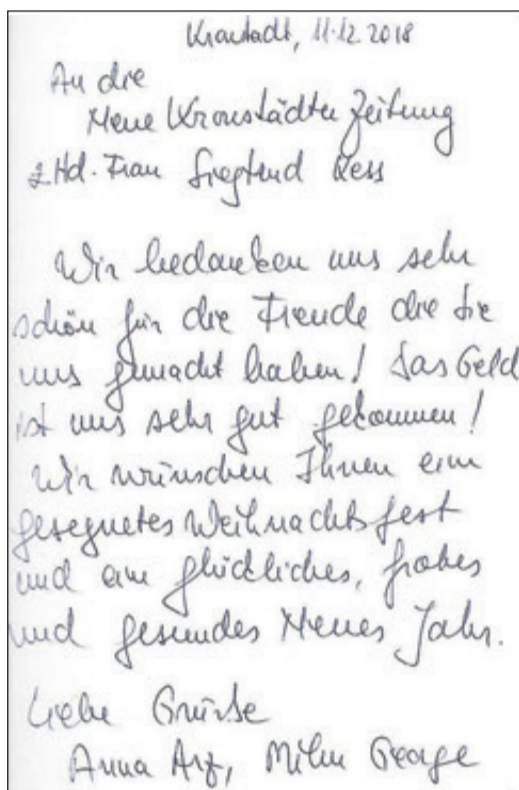 Kronstadt, 11.12 2018
An die
Neue Kronstädter Zeitung
z Hd. Frau Siegtrud Kess
Wir bedanken uns sehr
schön für die Freude die Sie
uns gemacht haben! Das Geld
ist uns sehr gut gekommen!
Wir wünschen Ihnen ein
gesegnetes Weihnachtsfest
und ein glückliches, frohes
und gesundes Neues Jahr.
Liebe Grüße
Anna Arz, George